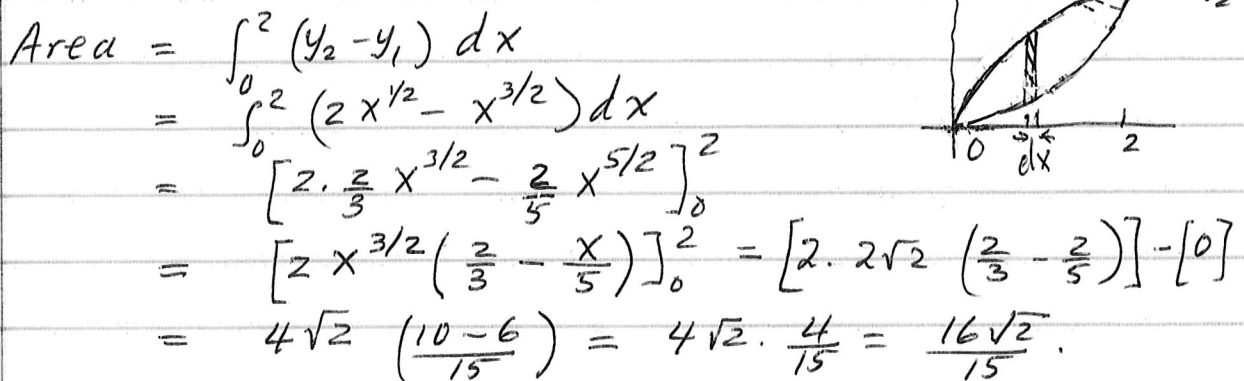 Area = ∫₀² (y₂ - y₁) dx
= ∫₀² (2x^{1/2} - x^{3/2}) dx
0 dx 2
= [2 · 2/3 x^{3/2} - 2/5 x^{5/2}]₀²
= [2x^{3/2} (2/3 - x/5)]₀² = [2 · 2√2 (2/3 - 2/5)] - [0]
= 4√2 ((10 - 6)/15) = 4√2 · 4/15 = 16√2/15 .